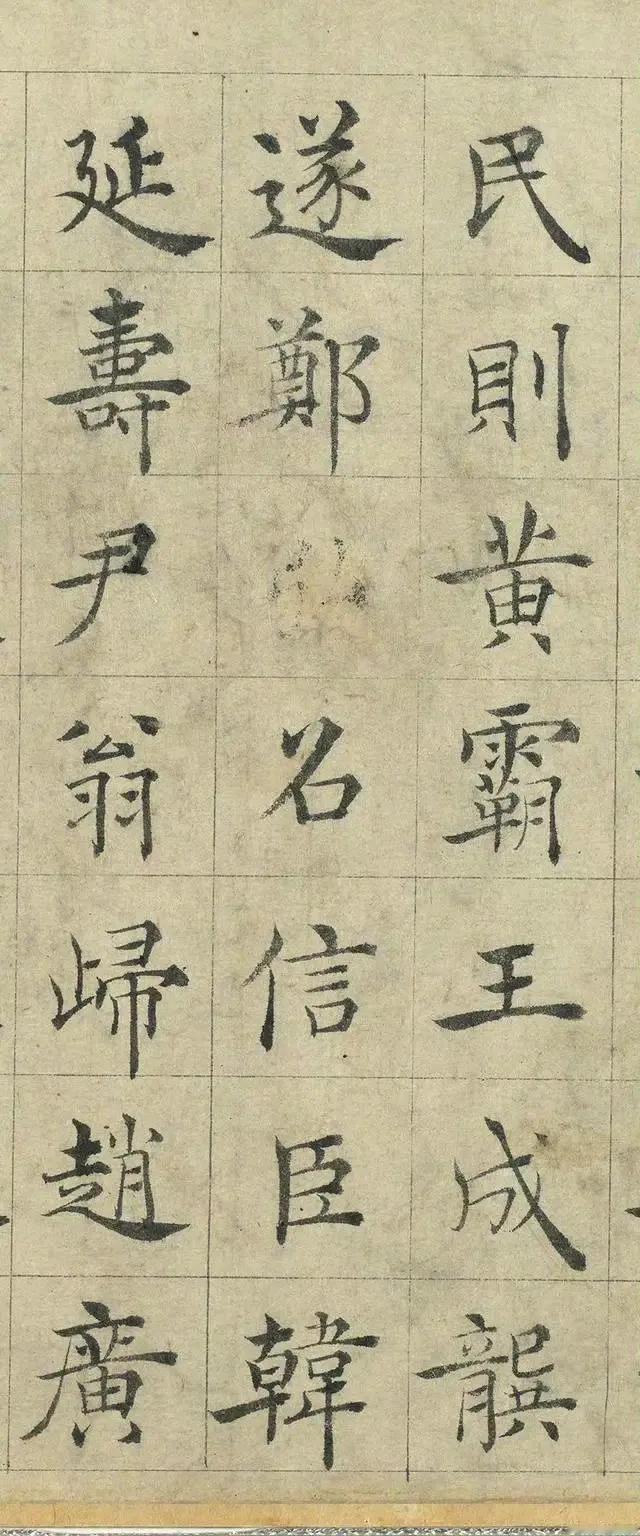 民則黄霸王成龔
遂鄭召信臣韓
延壽尹翁歸趙廣